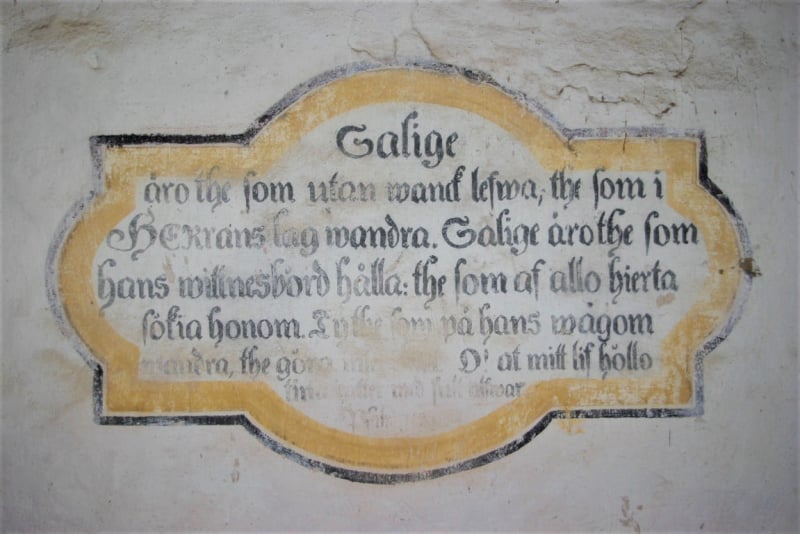 Salige
äro the som utan wanck lefwa, the som i
HERrans lag wandra. Salige äro the som
hans wittnesbörd hålla: the som af allo hierta
sökia honom. Ty the som på hans wägom
wandra, the göra O! at mitt lif höllo
tina rätter med fullt alfwar